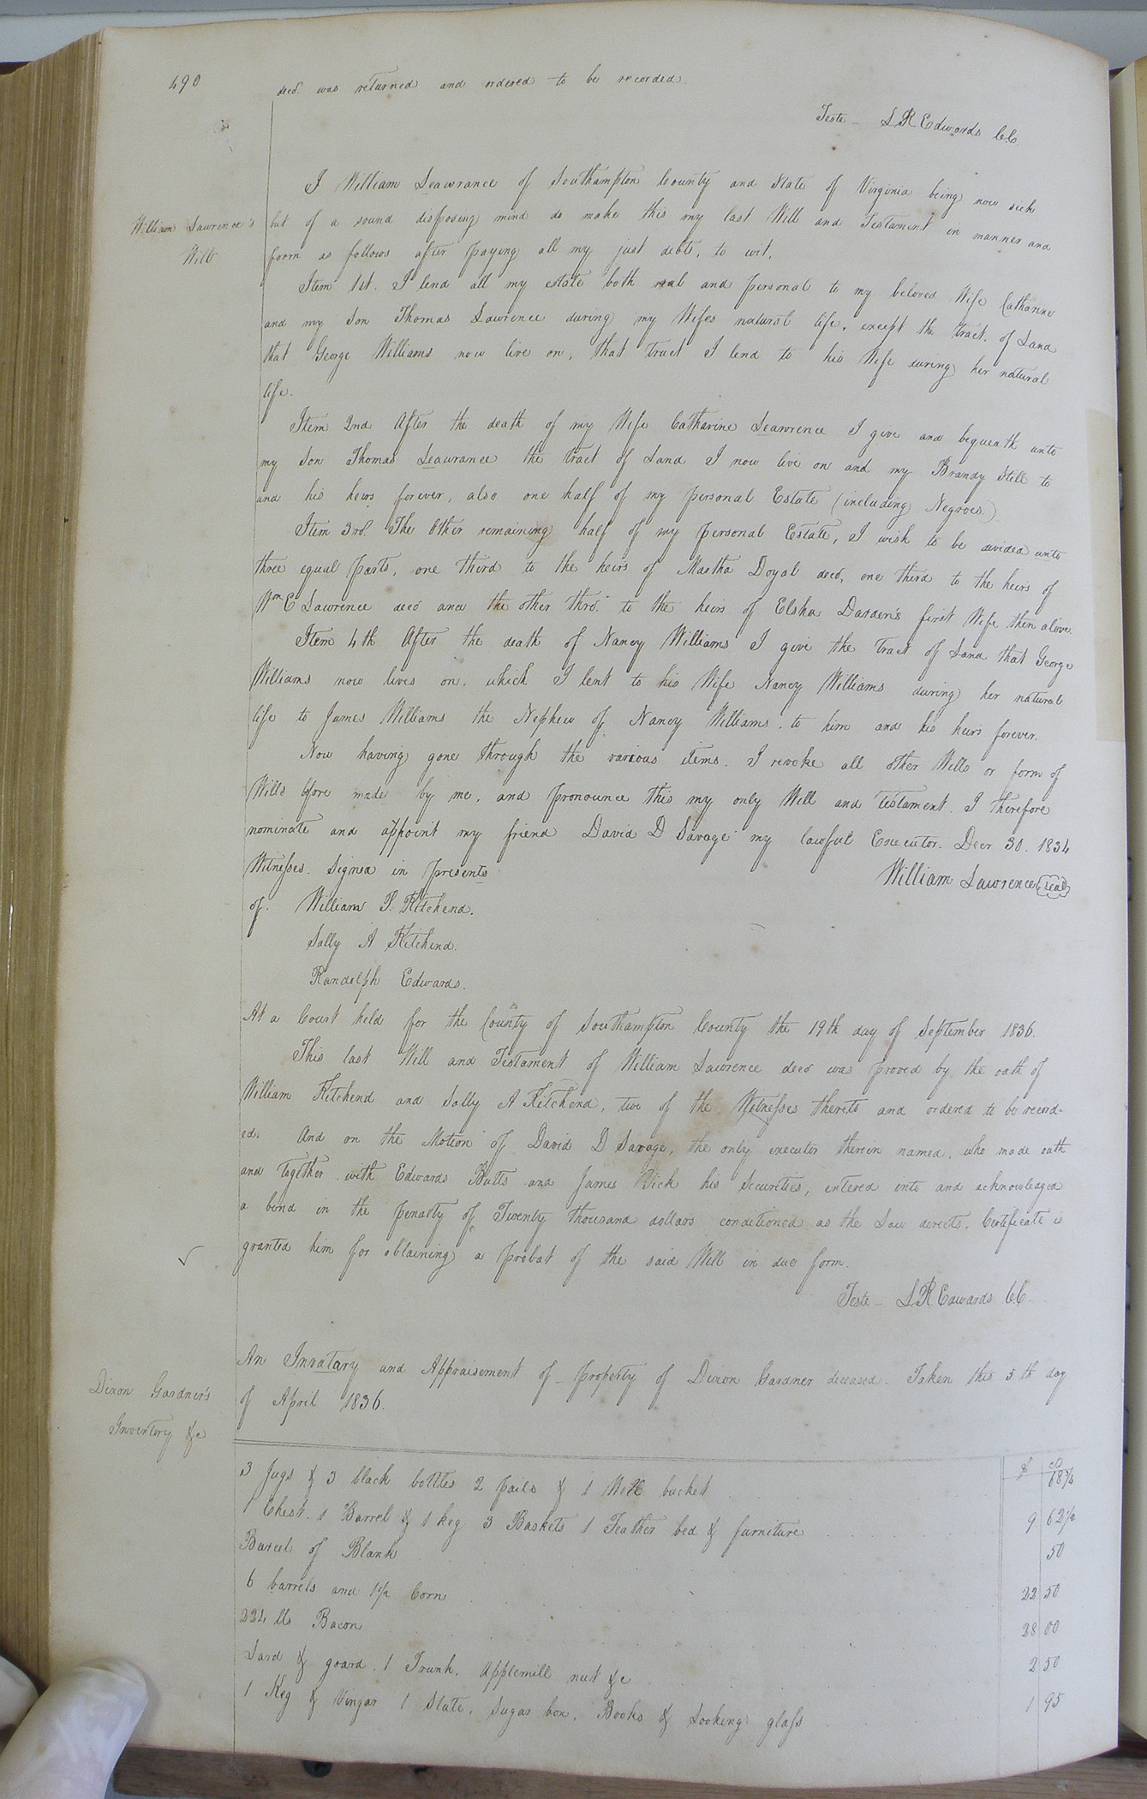 490
decd. was returned and ordered to be recorded
Teste - L R Edwards C.C.
William Lawrence's
Will
I William Leawrance of Southampton County and State of Virginia being now sick
but of a sound disposing mind do make this my last Will and Testament in manner and
form as follows after paying all my just debts, to wit,
Item 1st. I lend all my estate both real and personal to my beloved Wife Catharine
and my Son Thomas Lawrence during my Wifes natural life, except the tract of Land
that George Williams now live on, that tract I lend to his Wife during her natural
life.
Item 2nd After the death of my Wife Catharine Leawrence I give and bequeath unto
my Son Thomas Leawrance the tract of Land I now live on and my Brandy Still to
and his heirs forever, also one half of my personal Estate (including Negroes)
Item 3rd. The Other remaining half of my personal Estate, I wish to be divided unto
three equal parts, one third to the heirs of Martha Doyal decd, one third to the heirs of
Wm E Lawrence decd and the other third to the heirs of Elsha Darden's first Wife then alive.
Item 4th After the death of Nancy Williams I give the tract of Land that George
Williams now lives on, which I lent to his Wife Nancy Williams during her natural
life to James Williams the Nephew of Nancy Williams. to him and his heirs forever.
Now having gone through the various items. I revoke all other Wills or form of
Wills bfore made by me, and pronounce this my only Will and Testament. I therefore
nominate and appoint my friend David D Savage my lawful Executor. Decr 30. 1834
Witnesses. Signed in presents
William Lawrence seal
of. William P. Kitchend.
Sally A Kitchend.
Randolph Edwards.
At a Court held for the County of Southampton County the 19th day of September 1836.
This last Will and Testament of William Lawrence decd was proved by the oath of
William Kitchend and Sally A Kitchend, two of the Witnesses thereto and ordered to be record-
ed. And on the Motion of David D Savage, the only executor therein named, who made oath
and together with Edwards Butts and James Rick his Securities, entered into and acknowledged
a bond in the penalty of Twenty thousand dollars conditioned as the Law directs. Certificate is
granted him for obtaining a Probat of the said Will in due form.
Teste - L R Edwards C.C.
Dixon Gardner's
Inventory &c
An Invatary and Appraisement of property of Dixon Gardner deceased. Taken this 5th day
of April 1836.
$ cts
3 Jugs & 3 black bottles 2 pails & 1 Well bucket 68¾
1 Chest. 1 Barrel & 1 keg 3 Baskets 1 Feather bed & furniture 9 62½
Parcel of Plank 50
6 barrels and 1½ Corn 22 50
224 lbs Bacon 28 00
Lard & goard. 1 Trunk. Applemill nut &c 2 50
1 Keg & Vingar 1 Slate, Sugar box, Books & Looking glass 1 95